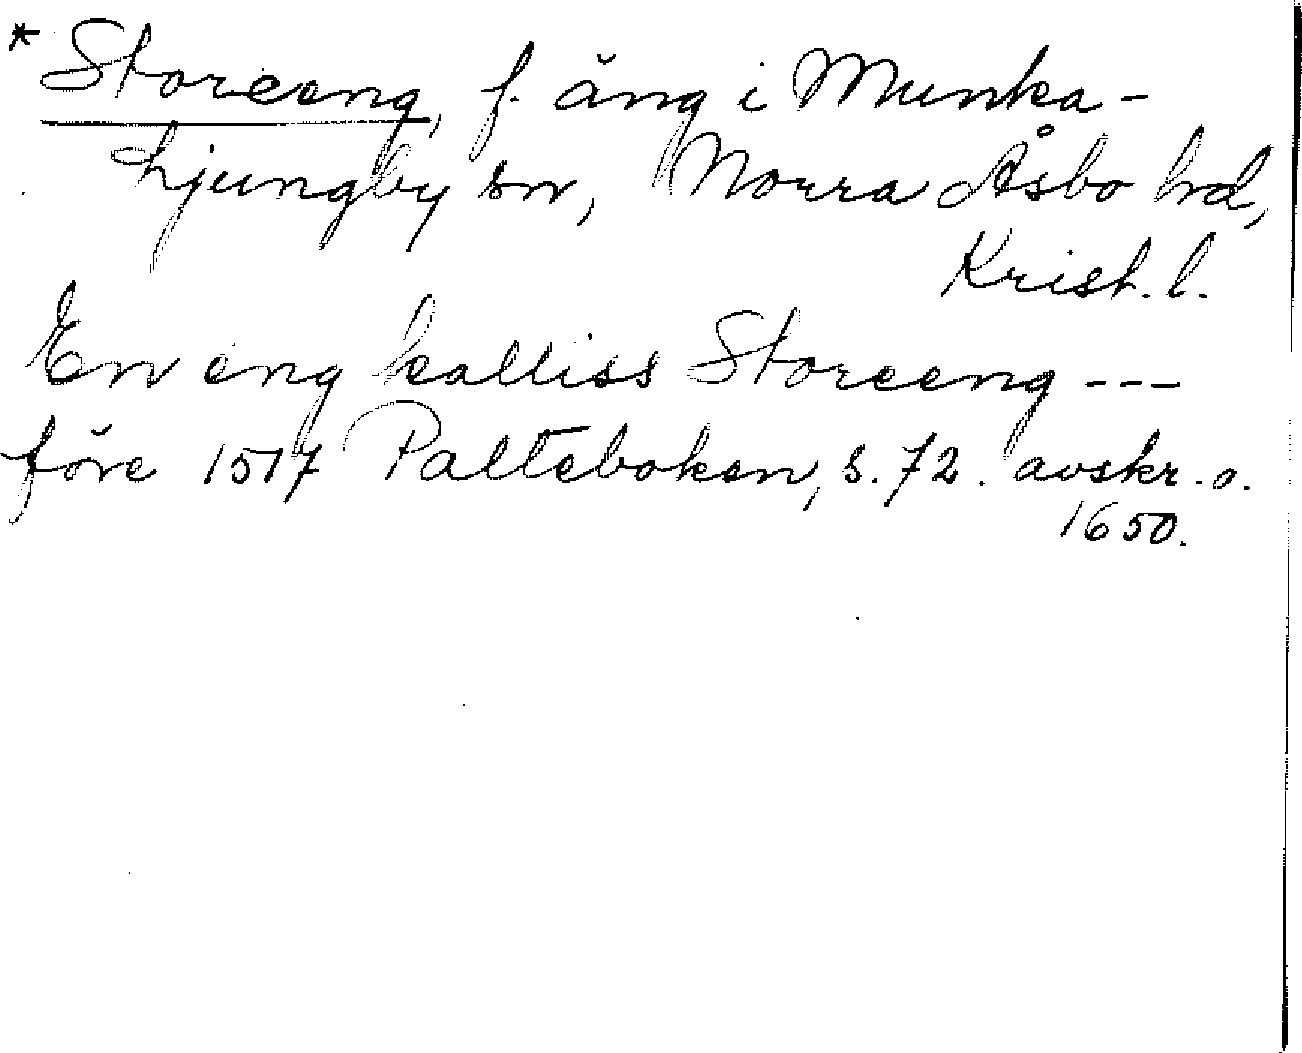 * Storeeng, f. äng i Munka-
Ljungby sn, Norra Åsbo hd,
Krist. l.
En eng kalliss Storeeng ---
före 1517 Palteboken, s. 72. avskr. o.
1650.